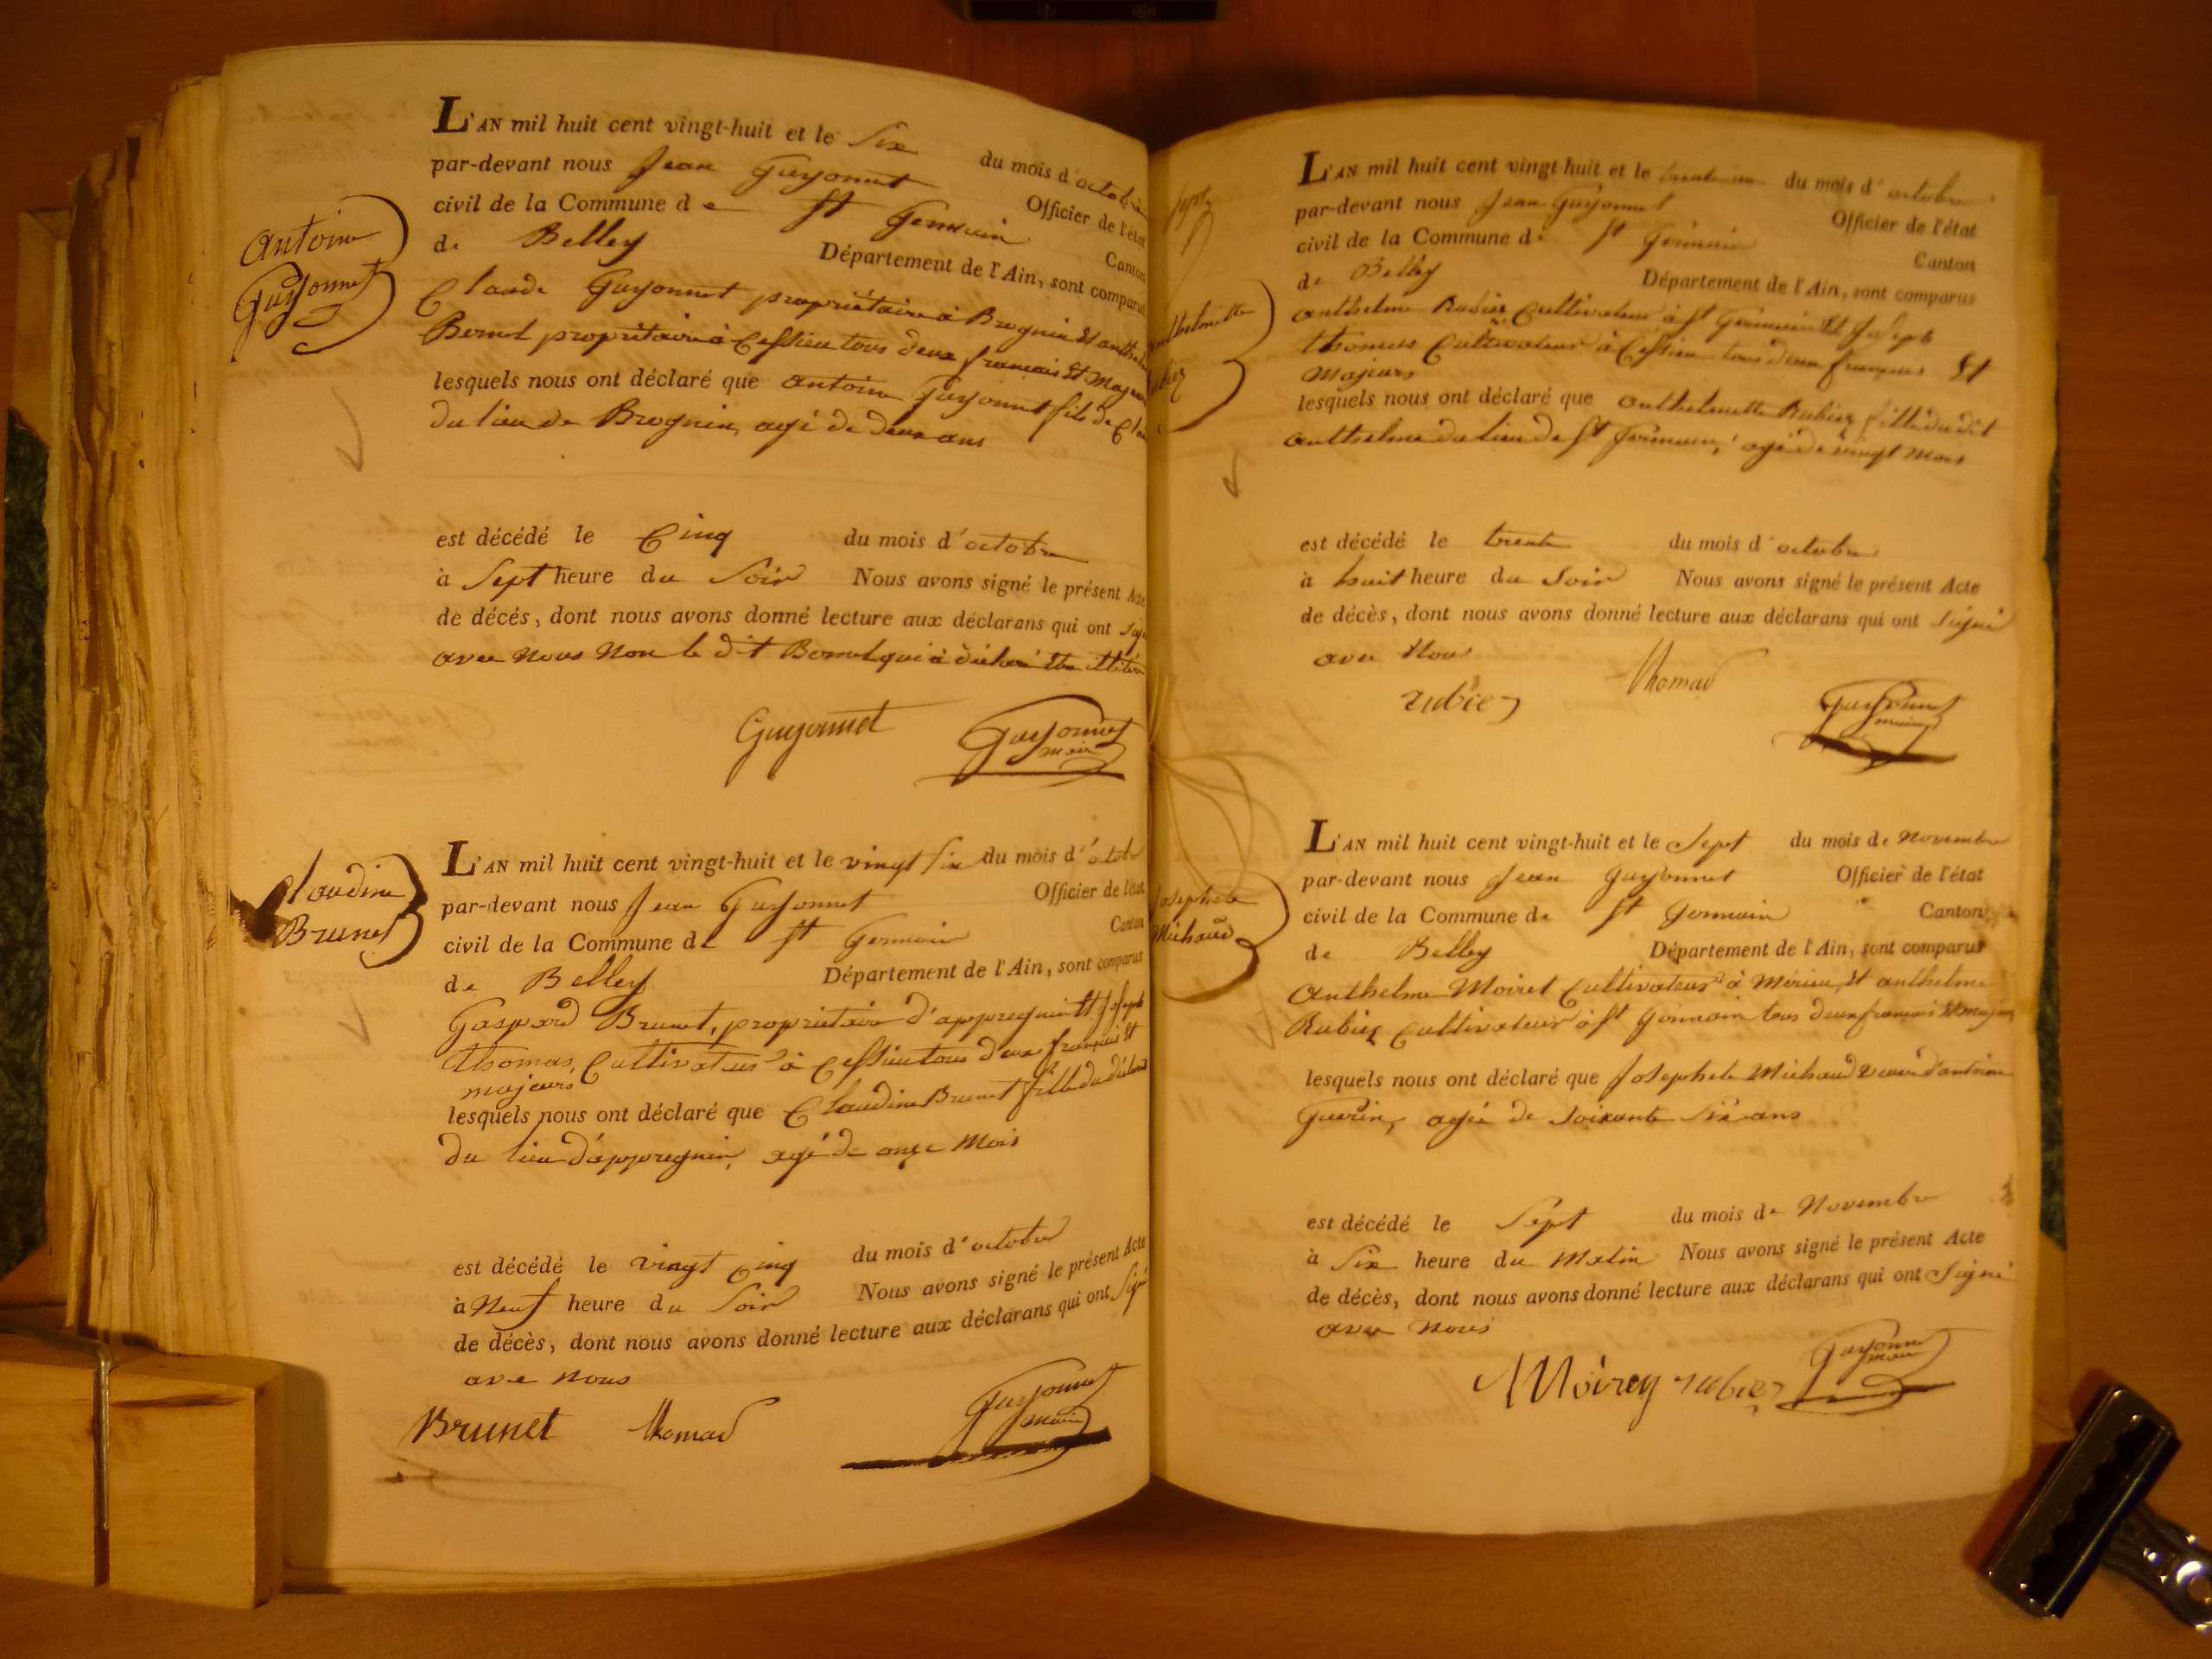 Antoine
Guyonnet
L'AN mil huit cent vingt-huit et le Six du mois d'octobre
par-devant nous Jean Guyonnet Officier de l'état
civil de la Commune de St Germain Canton
de Belley Département de l'Ain, sont comparus
Claude Guyonnet propriétaire à Brognin Et anthel
Bornet propriétaire à Cessieu tous deux francais Et Majeu
lesquels nous ont déclaré que antoine Guyonnet fils de Clau
du lieu de Brognin, agé de deux ans
est décédé le Cinq du mois d'octobre
à Sept heure du Soir Nous avons signé le présent Acte
de décés, dont nous avons donné lecture aux déclarans qui ont sign
avec nous Non le dit Bornet qui à déclaré Etre illitéré
Guyonnet Guyonnet
maire
Claudine
Brunet
L'AN mil huit cent vingt-huit et le vingt six du mois d'octob
par-devant nous Jean Guyonnet Officier de l'état
civil de la Commune de St Germain Canton
de Belley Département de l'Ain, sont comparus
Gaspard Brunet, propriétaire d'appregnin Et Joseph
Thomas, Cultivateur à Cessieu tous deux français Et
majeurs
lesquels nous ont déclaré que Claudine Brunet fille du
du lieu d'appregnin, agé de onze Mois
est décédé le vingt cinq du mois d'octobre
à Neuf heure du Soir Nous avons signé le présent Acte
de décès, dont nous avons donné lecture aux déclarans qui ont Signé
ave nous
Brunet thomas Guyonnet
maire
Sept
nthelmette
ubiez
L'AN mil huit cent vingt-huit et le trente un du mois d'octobre
par-devant nous Jean Guyonnet Officier de l'état
civil de la Commune de St Germain Canton
de Belley Département de l'Ain, sont comparus
anthelme Rubiez Cultivateur à St Germain Et Joseph
thomas Cultivateur à Cessieu tous deux français Et
Majeurs
lesquels nous ont déclaré que anthelmette Rubiez fille du dit
anthelme du lieu de St Germain, agé de vingt Mois
est décédé le trente du mois d'octobre
à huit heure du Soir Nous avons signé le présent Acte
de décès, dont nous avons donné lecture aux déclarans qui ont Signé
avec Nous
rubiez thomas Guyonnet
maire
Josephete
Michaud
L'AN mil huit cent vingt-huit et le Sept du mois de Novembre
par-devant nous Jean Guyonnet Officier de l'état
civil de la Commune de St Germain Canton
de Belley Département de l'Ain, sont comparus
Anthelme Moiret Cultivateur à Mérieu, Et anthelme
Rubiez Cultivateur à St Germain tous deux francais Et majeurs
lesquels nous ont déclaré que Josephete Michaud veuve d'antoine
Guérin, agée de Soixante Six ans
est décédé le Sept du mois de Novembre
à Six heure du Matin Nous avons signé le présent Acte
de décès, dont nous avons donné lecture aux déclarans qui ont Signé
avec nous
Moirey rubiez Guyonnet
maire